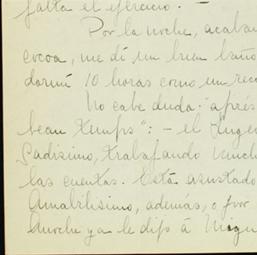 falta el ejercicio. —
Por la noche, acaban
cocoa, me dí un buen baño
dormí 10 horas como un rec
No cabe duda: "aprés
beau temps": — el Ingen
sadísimo, trabajando much
las cuentas. Está asustado
Amabilísimo, además, o por
Anoche ya le dije á Migu